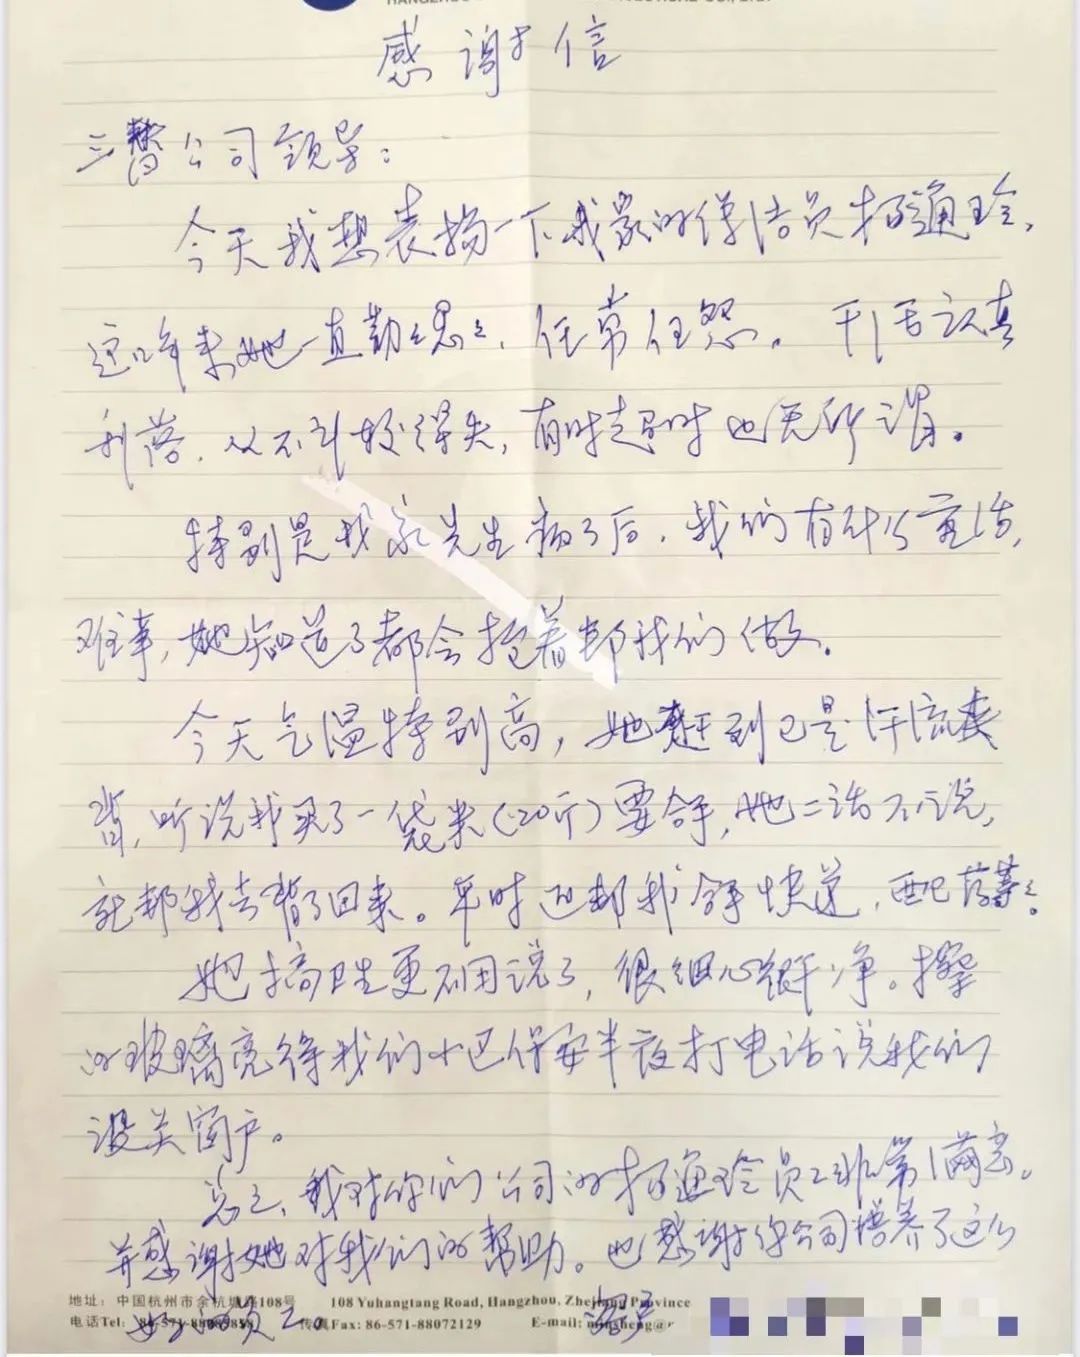 感谢信
三替公司领导：
今天我想表扬一下我家的保洁员杨通玲，
这几年来她一直勤勤恳恳、任劳任怨。干活认真
利落，从不计较得失，有时超时也无所谓。
特别是我家先生病了后，我们有什么重活，
难事，她知道了都会抢着帮我们做。
今天气温特别高，她赶到已是汗流夹
背，听说我买了一袋米(20斤)要拿，她二话不说，
就帮我去背了回来。平时还帮我拿快递，配药等等。
她搞卫生更不用说了，很细心很干净。擦
的玻璃亮得我们小区保安半夜打电话说我们
没关窗户。
总之，我对你们公司的杨通玲员工非常满意。
并感谢她对我们的帮助。也感谢你公司培养了这么
好的员工。
地址：中国杭州市余杭塘路108号 108 Yuhangtang Road, Hangzhou, Zhejiang Province
电话Tel: 传真Fax: 86-571-88072129 E-mail: